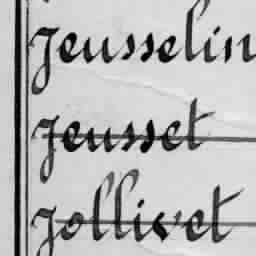 Jeusselin
Jeusset
Jollivet